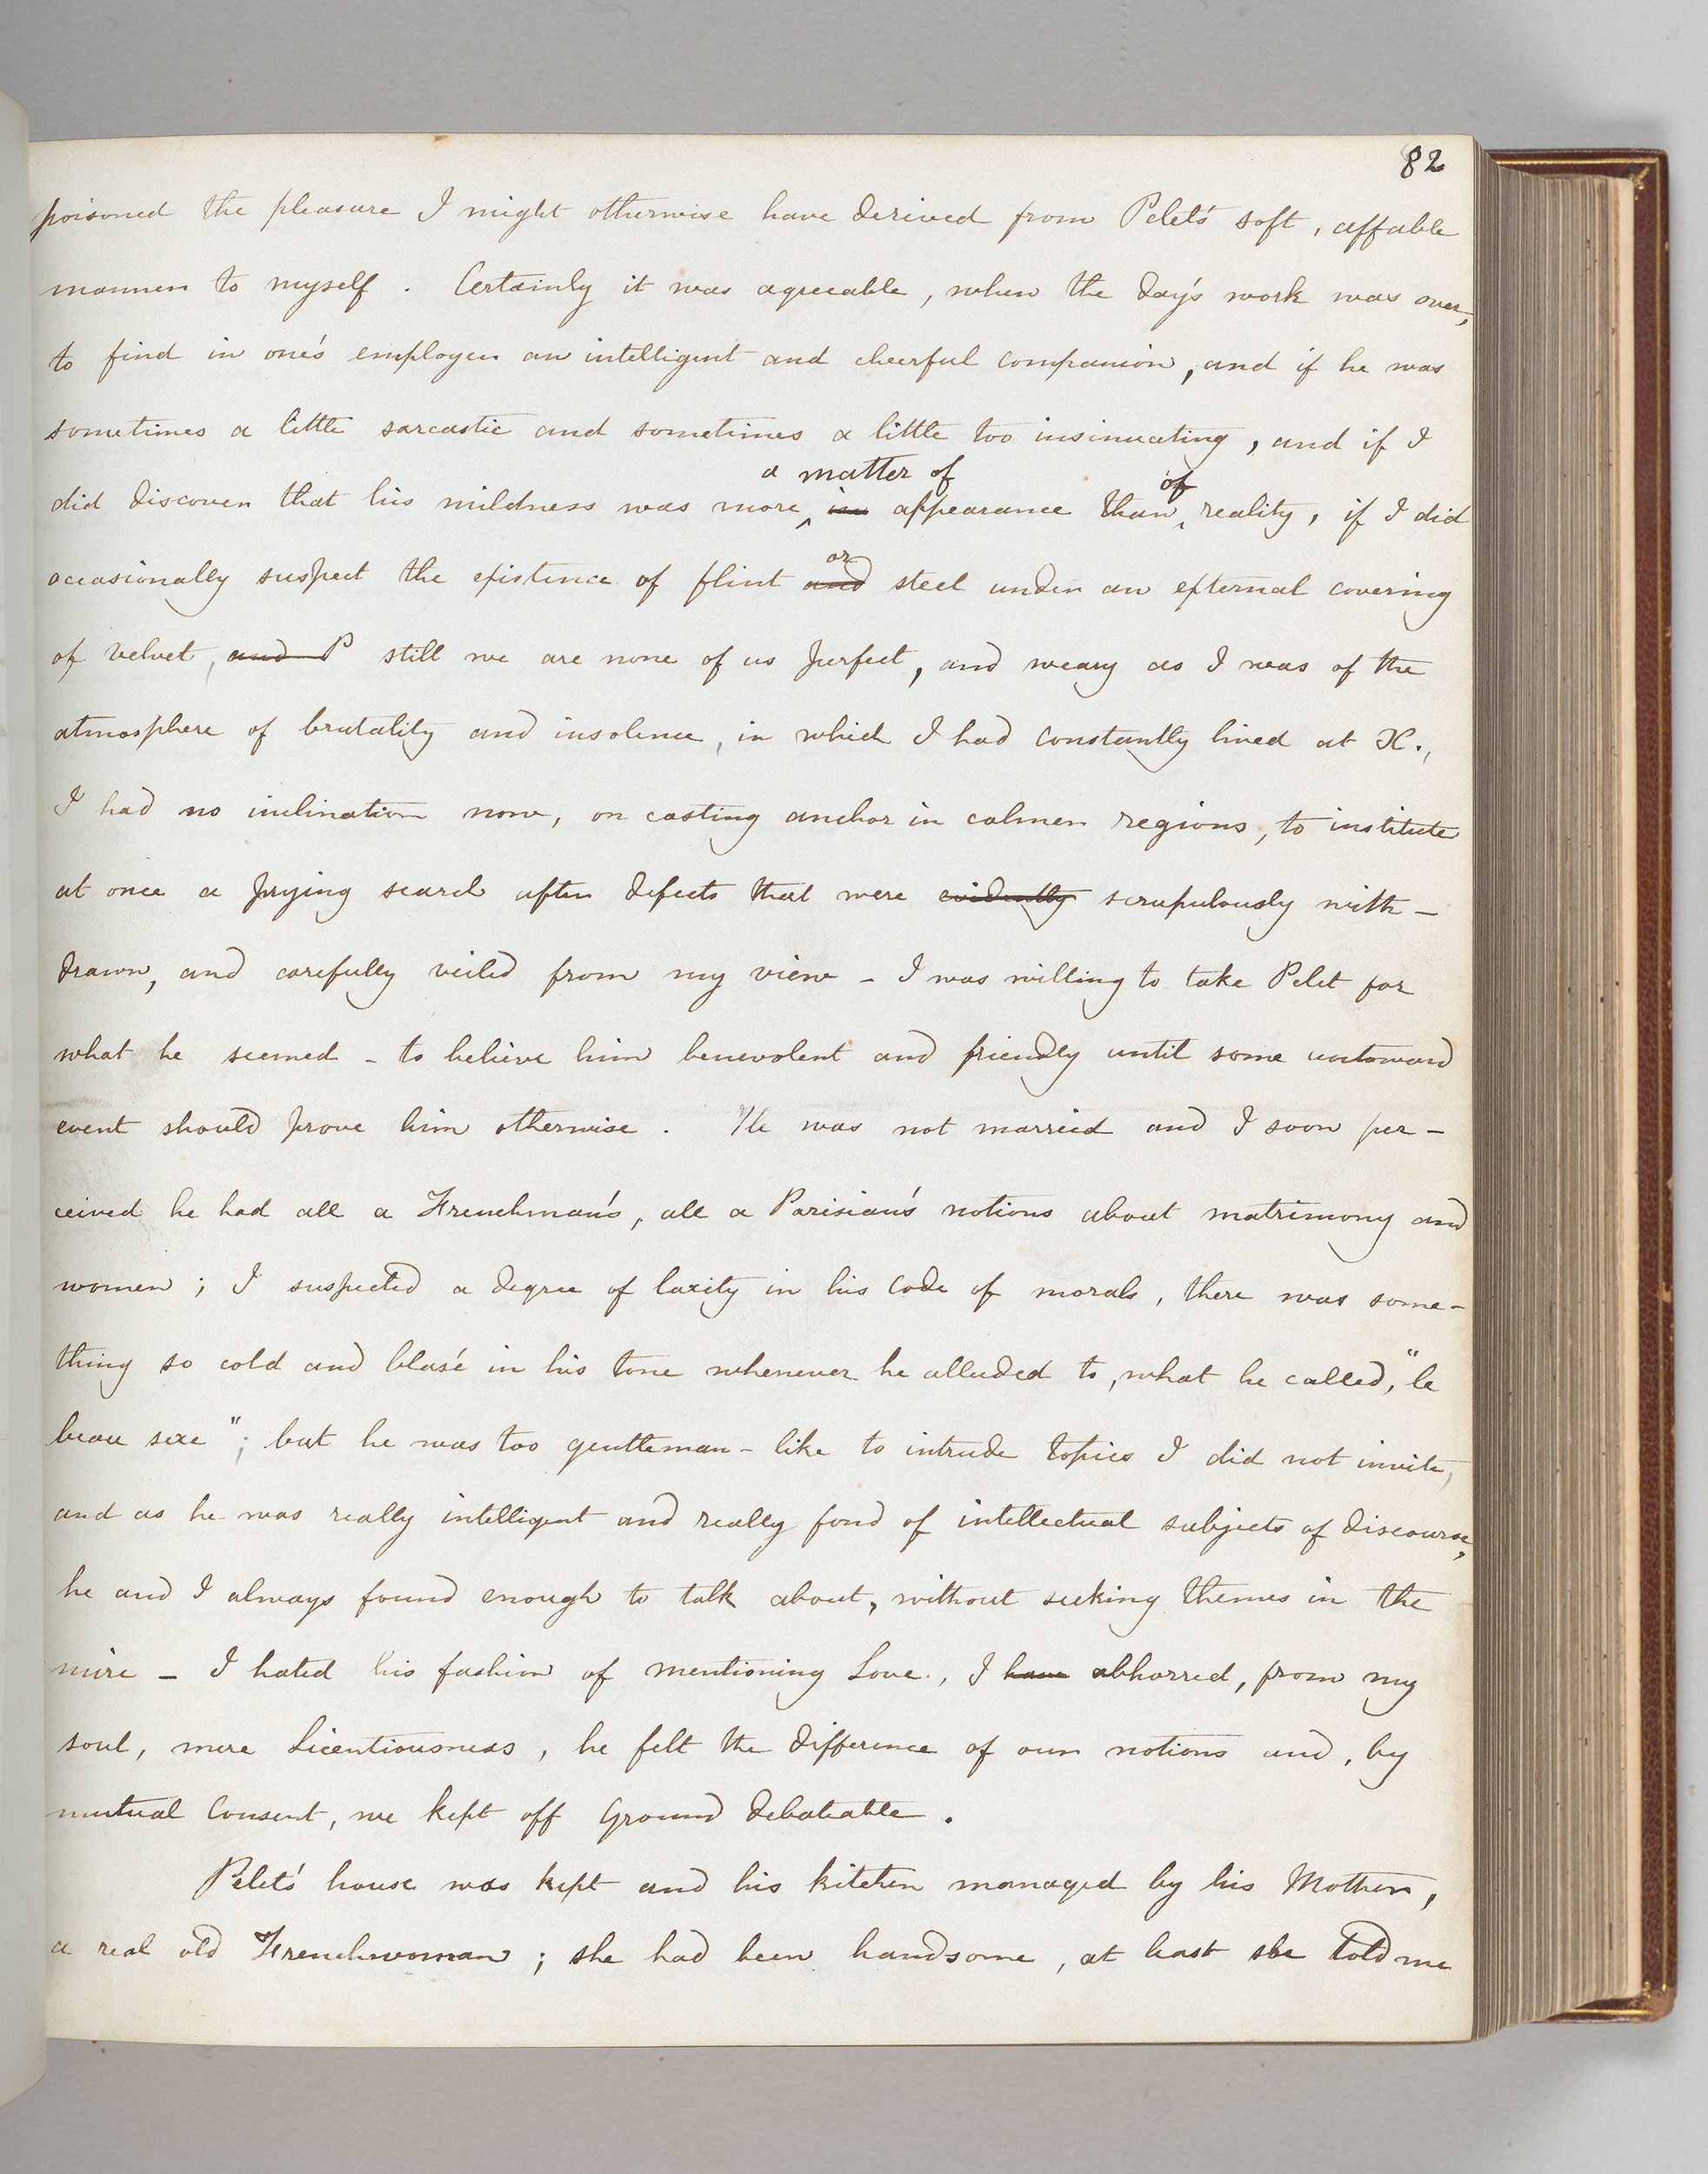 82
poisoned the pleasure I might otherwise have derived from Pelet's soft, affable
manner to myself. Certainly it was agreeable, when the day's work was over,
to find in one's employer an intelligent and cheerful companion, and if he was
sometimes a little sarcastic and sometimes a little too insinuating, and if I
a matter of of
did discover that his mildness was more ‸ in appearance than ‸ reality, if I did
or
occasionally suspect the existence of flint and steel under an external covering
of velvet, and P still we are none of us perfect, and weary as I was of the
atmosphere of brutality and insolence, in which I had constantly lived at X.,
I had no inclination now, on casting anchor in calmer regions, to institute
at once a prying search after defects that were evidently scrupulously with-
drawn, and carefully veiled from my view - I was willing to take Pelet for
what he seemed - to believe him benevolent and friendly until some untoward
event should prove him otherwise. He was not married and I soon per-
ceived he had all a Frenchman's, all a Parisian's notions about matrimony and
women; I suspected a degree of laxity in his code of morals, there was some-
thing so cold and blasé in his tone whenever he alluded to, what he called, "le
beau sexe"; but he was too gentleman-like to intrude topics I did not invite,
and as he was really intelligent and really fond of intellectual subjects of discourse,
he and I always found enough to talk about, without seeking themes in the
mire - I hated his fashion of mentioning Love, I have abhorred, from my
soul, mere Licentiousness, he felt the difference of our notions and, by
mutual consent, we kept off ground debateable.
Pelet's house was kept and his kitchen managed by his Mother,
a real old Frenchwoman; she had been handsome, at least she told me